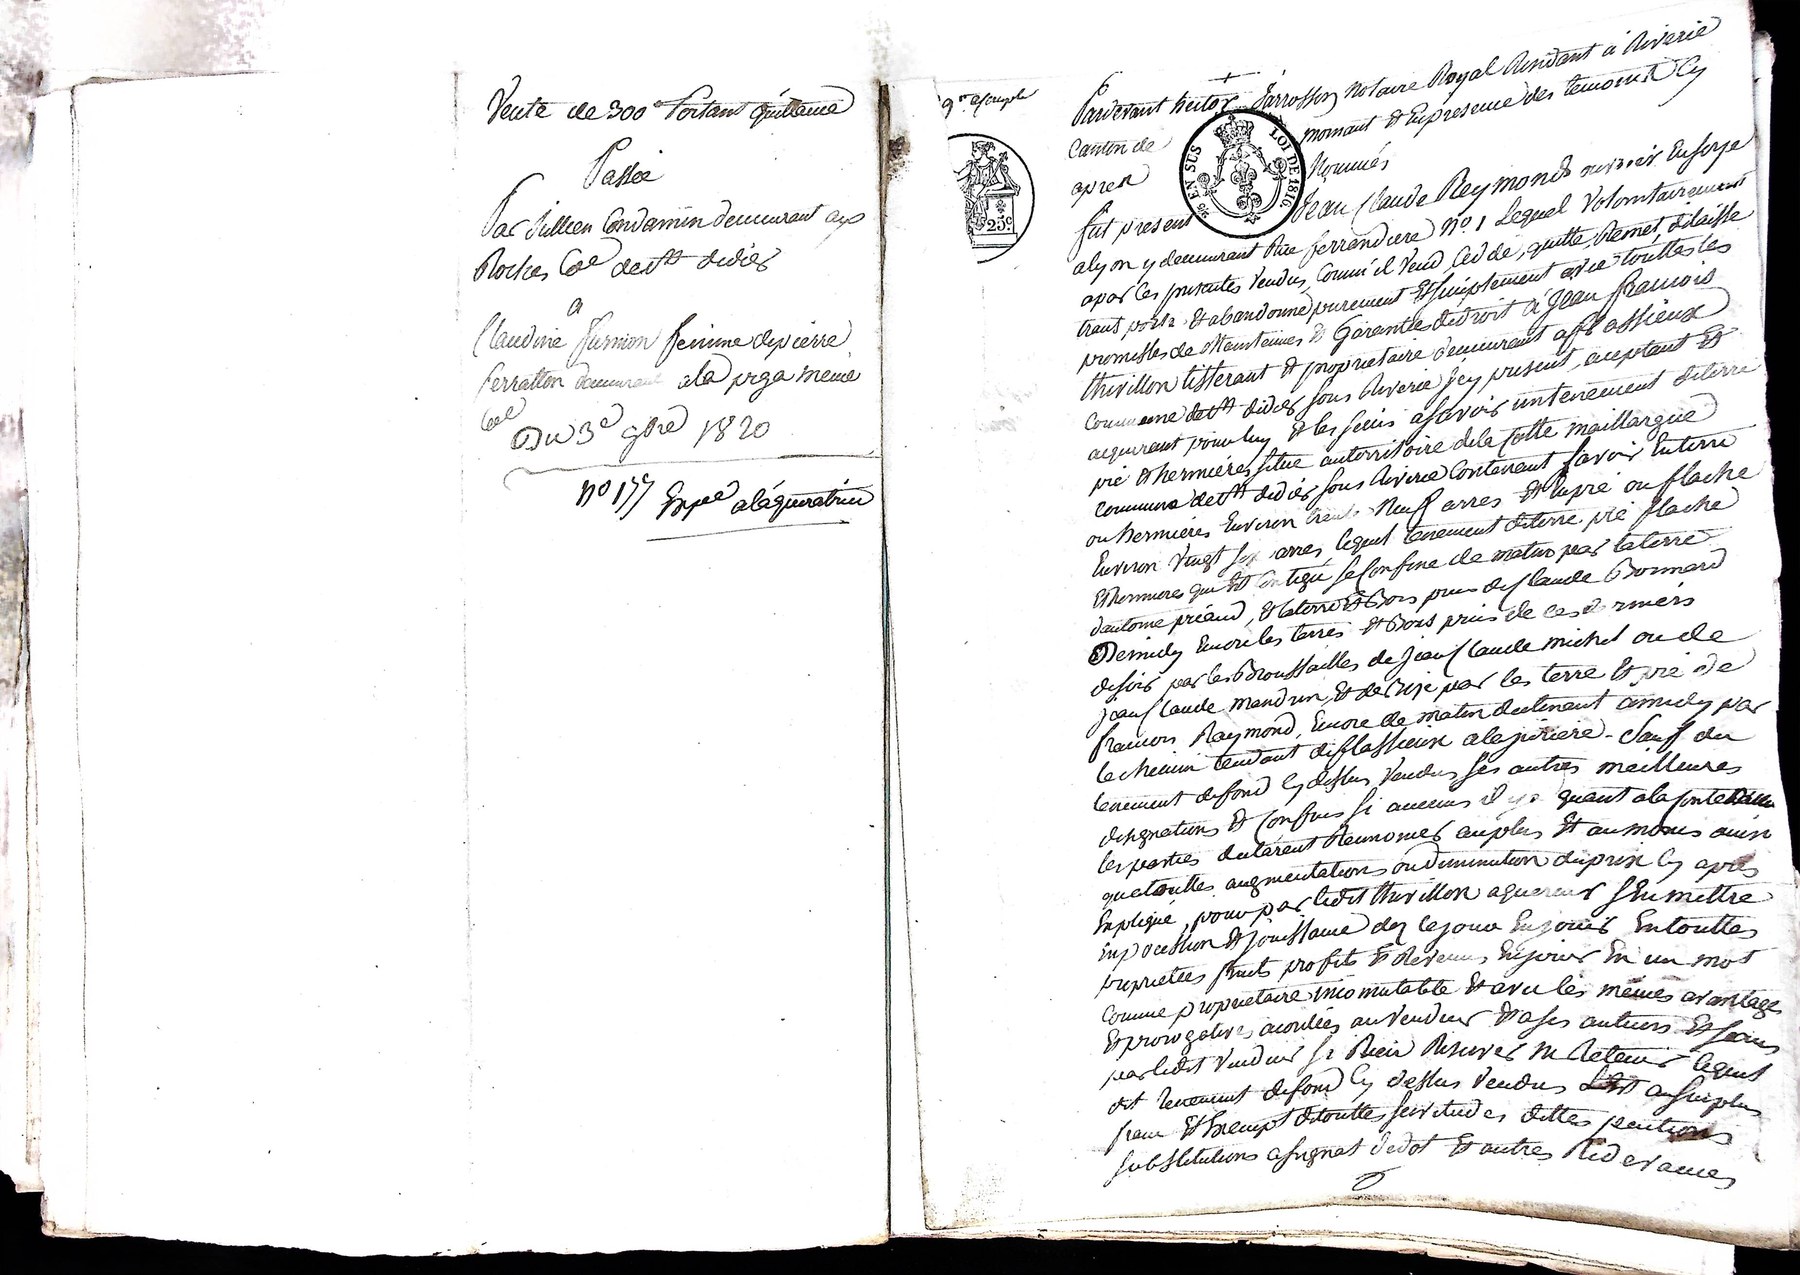 Vente de 300 f portant quittance
Passée
Par Jullien Condamin demeurant aux
Roches Cne de st didier
a
Claudine furnion femme de pierre
ferratton demeurant a la même
Cne
Du 3e 9bre 1820
No 177 Expee a l'aqueratrice
9re
25c
EN SUS LOI DE 1816
Pardevant hector Jarrosson Notaire Royal Resident à Riverie
Canton de mornant Et En presence des temoins Cy
apres Nommés
fut present Jean Claude Reymond ouvrier En soye
a lyon y demeurant Rue ferrandiere No 1 Lequel Volontairement
a par les presentes vendus, comm'il vend Cede, quitte, Remet, delaisse
transporte & abandonne purement Et simplement avec touttes les
promesses de Maintenues & Garantie de droit à Jean francois
thivillon tisserant & proprietaire demeurant a fflassieux
commune de st didier sous Riverie Jcy present, aceptant Et
aquerant pour luy Et les siens a savoir un tenement de terre
pré & hermieres situé au territoire de la Cotte maillargue
commune de st didier sous Riverie Contenant savoir En terre
ou hermieres Environ trente Neuf arres Et En pré ou flache
Environ Vingt arres, lequel tenement de terre pré flache
Et hermieres qui Est Contigu se Confine de matin par la terre
d'antoine, Et la terre Et Bois pins de Claude Bonnard
De midy Encore les terres Et Bois pins de ces derniers
de soir par les Broussailles de Jean Claude michel ou de
Jean Claude mandrin, Et de Bize par les terre Et pré de
francois Raymond, Encore de matin declinant a midy par
le chemin tendant de fflassieux a la - sauf du
tenement de fond Cy dessus Vendus ses autres meilleures
designations Et Confins si aucuns il y a quant a la Contenance
les parties declarent Renoncer au plus Et au moins ainsi
que touttes augmentations ou Diminution du prix Cy apres
Expliqué, pour par ledit thivillon aquereur s'En mettre
En pocession Et Jouissance dez ce jour En jouir En touttes
proprietées fruits profits & Revenus En jouir En un mot
Comme proprietaire incomutable Et avec les mêmes avantages
Et prerogatives acordées au Vendeur Et a ses auteurs Et sans
par ledit Vendeur se Rien Reserver ni Retenir lequel
dit tenement de fond Cy dessus Vendus Est au surplus
franc Et Exempt de touttes servitudes dettes pentions
substitutions asignat de dot Et autres Redevances